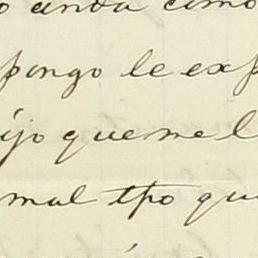 o anda como
pongo le exp
ijo que me l
mal tpo qu